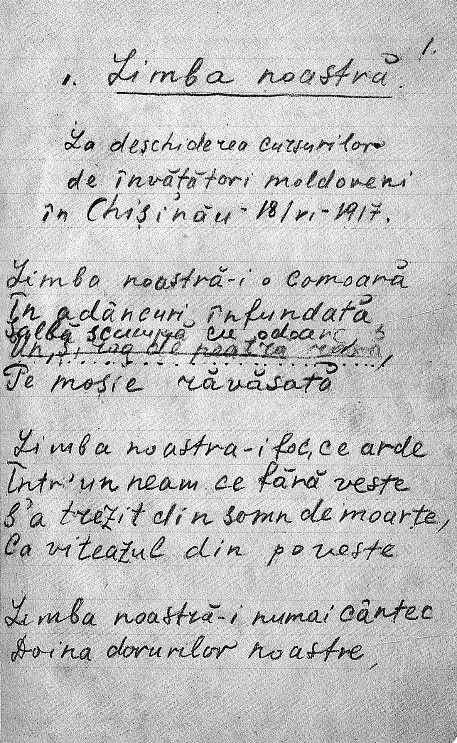 1.
1. Limba noastră.
La deschiderea cursurilor
de învățători moldoveni
în Chișinău - 18/VI - 1917.
Limba noastră-i o comoară
În adâncuri înfundată
Salbă scumpă cu odoare
Un șirag de piatră rară,
Pe moșie răvăsată
Limba noastra-i foc, ce arde
Într'un neam ce fără veste
S'a trezit din somn de moarte,
Ca viteazul din poveste
Limba noastră-i numai cântec
Doina dorurilor noastre,